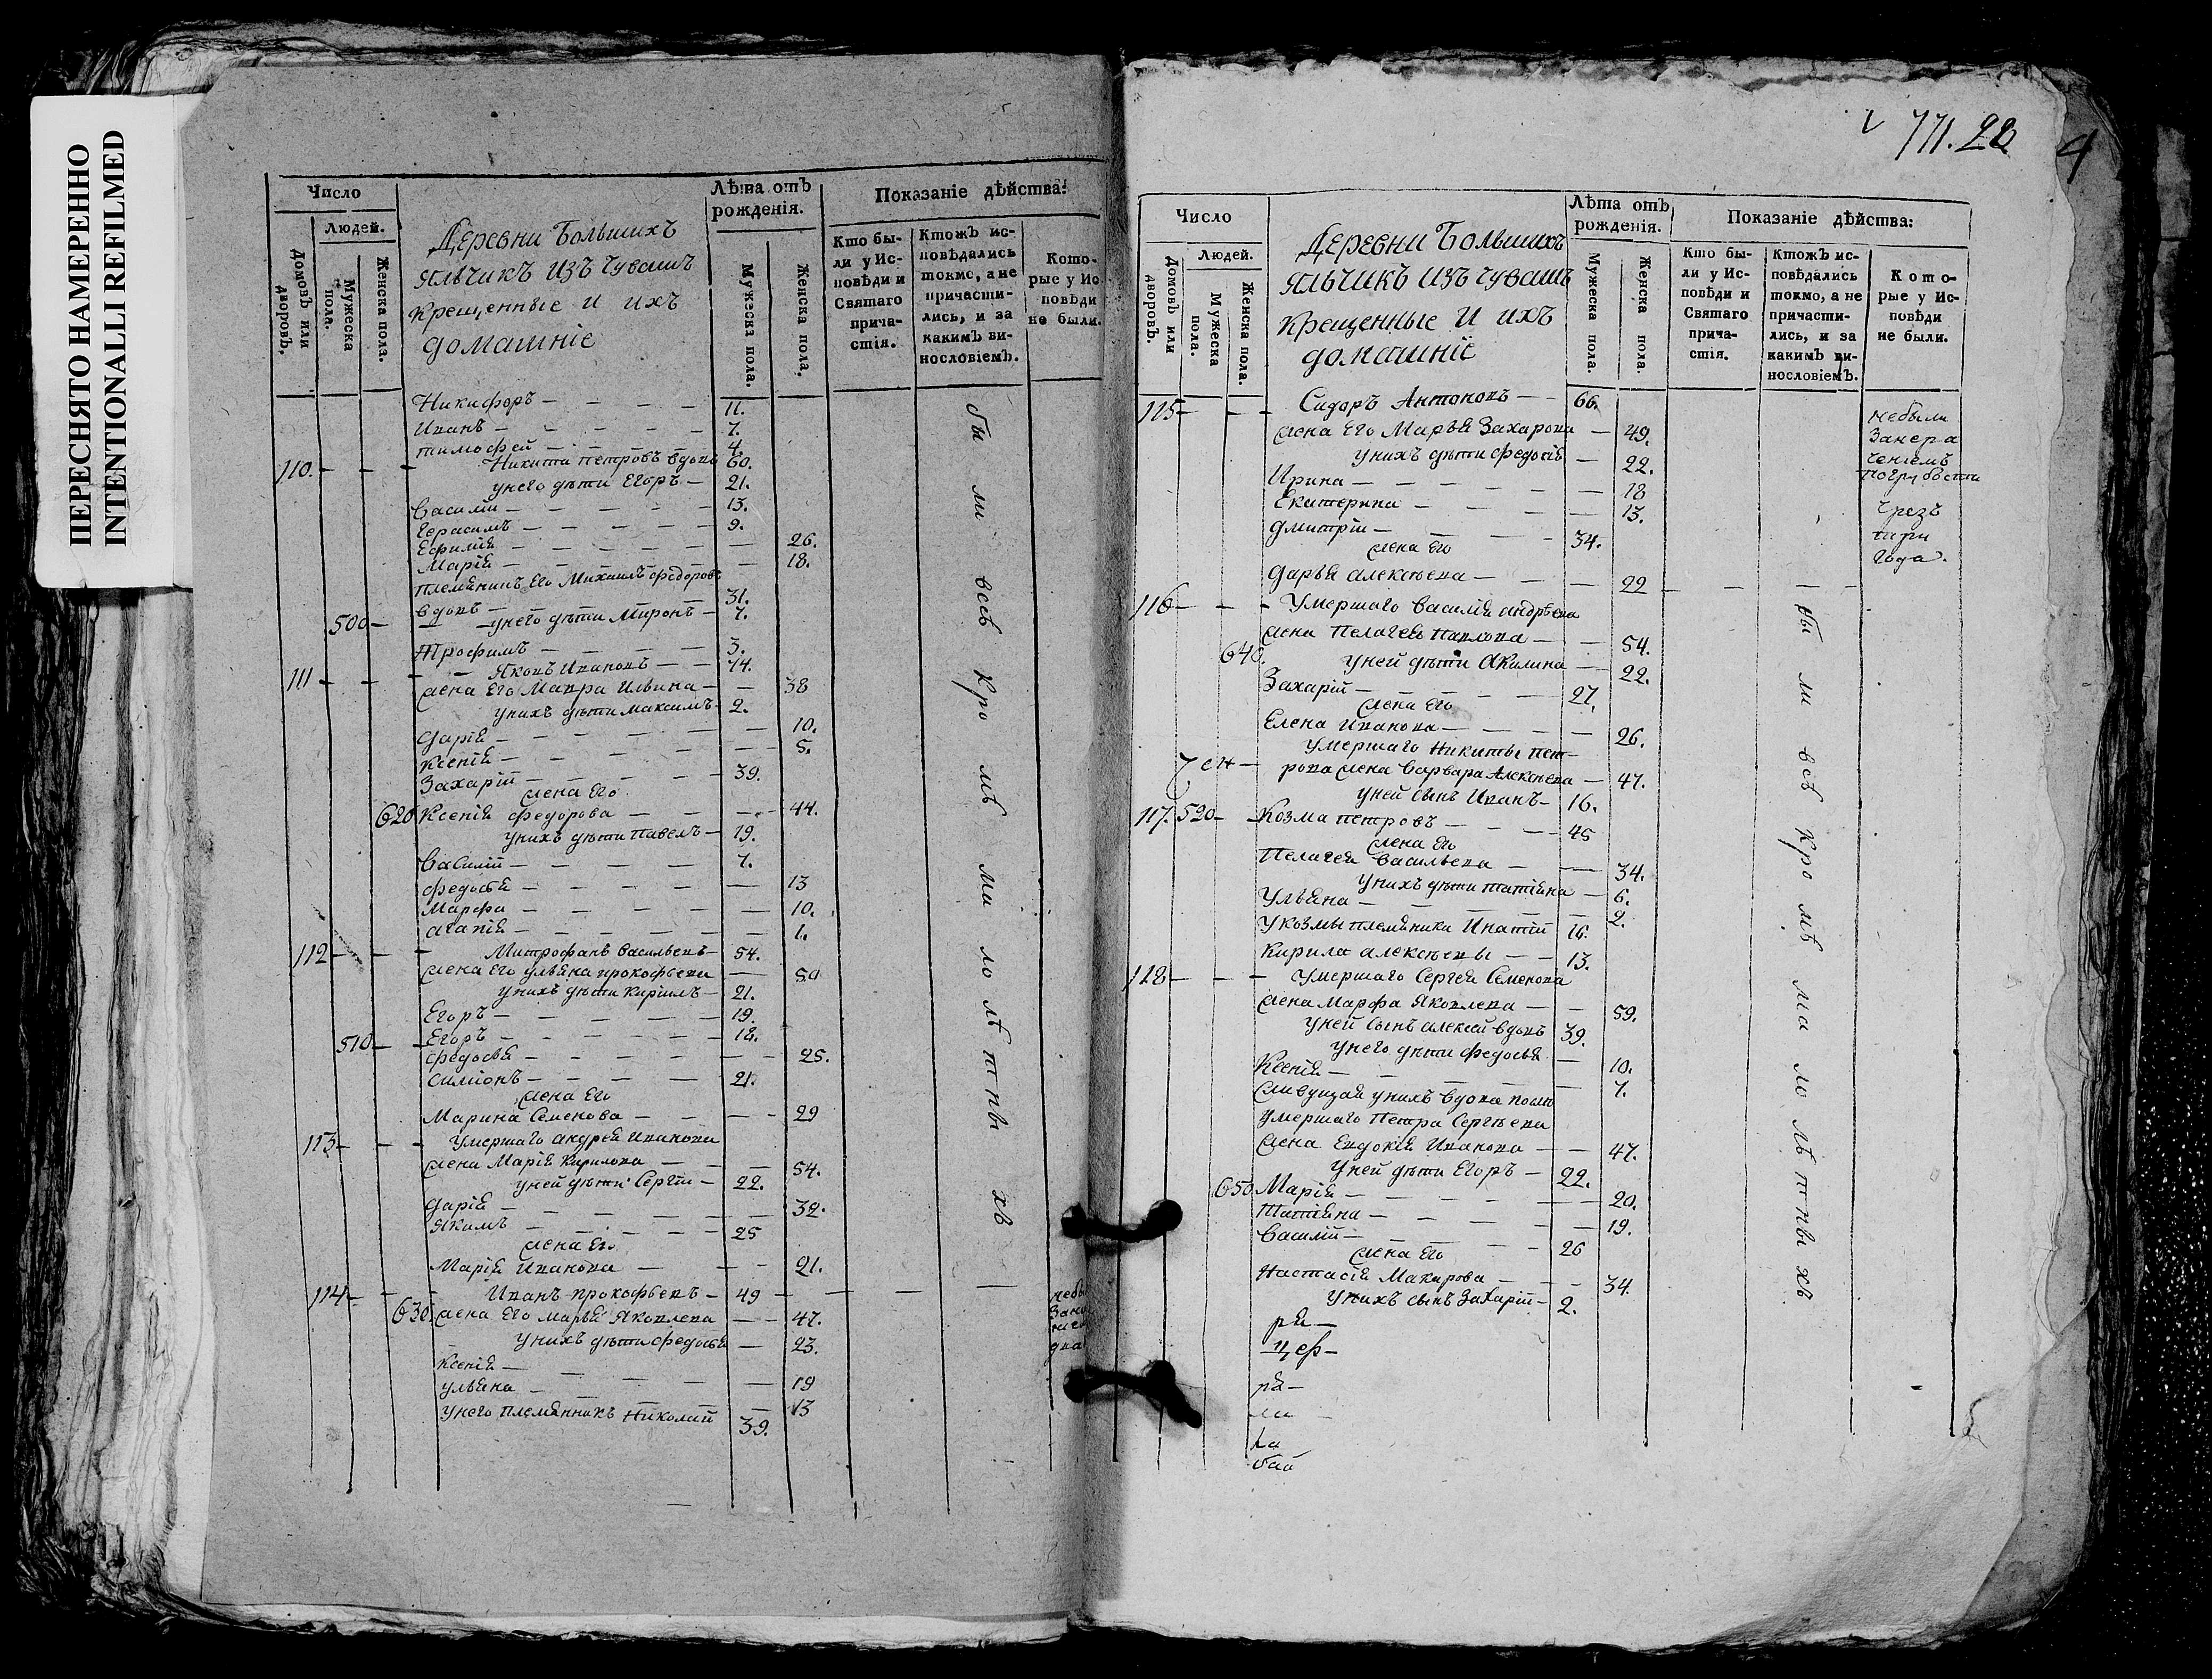 ПЕРЕСНЯТО НАМЕРЕННО
INTENTIONALLI REFILMED
Число
Людей.
Домовъ или дворовъ.
Мужеска пола.
Женска пола.
Деревни Большихъ
яльчикъ изъ чувашъ
крещенные и ихъ
домашніе
Лѣта отъ
рожденія.
Мужеска пола.
Женска пола.
Показаніе дѣйства:
Кто бы-
ли у Ис-
повѣди и
Святаго
прича-
стія.
Ктожъ ис-
повѣдались
токмо, а не
причасти-
лись, и за
какимъ ви-
нословіемъ.
Кото-
рые у Ис
повѣди
не были.
Никифоръ — 11.
Иванъ — 7.
тимофей — 4.
110. Никити петровъ вдовъ 60.
унего дѣти Егоръ — 21.
Василіи — 13.
Герасимъ — 9.
Ефимія — 26.
Марія — 18.
племянникъ Его Михаилъ федоровъ
вдовъ — 31.
500 — унего дѣти Миронъ — 7.
трофимъ — 3.
111 — Яковъ Ивановъ — 74.
жена Его Мавра Ильина — 38
унихъ дѣти Максимъ — 2.
Дарія — 10.
Ксенія — 5.
Захарій — 39.
жена Его
620 Ксенія федорова — 44.
унихъ дѣти Павелъ — 19.
Василій — 7.
федосья — 13
Марфа — 10.
агапія — 1.
112 — Митрофанъ Васильевъ — 54.
жена Его ульяна прокофьева — 50
унихъ дѣти Кирилъ — 21.
Егоръ — 19.
510 — Егоръ — 18.
федосья — 25.
симіонъ — 21.
жена Его
Марина Семенова — 29
113 — Умершаго андрея Иванова
жена Марія Кирилова — 54.
уней дѣти Сергій — 22.
Дарія — 32.
якимъ — 25
жена Его
Марія Иванова — 21.
114 — Иванъ прокофьевъ — 49
630. жена Его марья Яковлева — 47.
унихъ дѣти федосья — 23.
Ксенія —
ульяна — 19
унего племянникъ Николай — 13
39.
бы ли всѣ кро мѣ ма ло лѣ тны хъ
771. 28
4
Число
Людей.
Домовъ или дворовъ.
Мужеска пола.
Женска пола.
Деревни Большихъ
яльчикъ изъ чувашъ
крещенные и ихъ
домашніе
Лѣта отъ
рожденія.
Мужеска пола.
Женска пола.
Показаніе дѣйства:
Кто бы-
ли у Ис-
повѣди и
Святаго
прича-
стія.
Ктожъ ис-
повѣдались
токмо, а не
причасти-
лись, и за
какимъ ви-
нословіемъ.
Кото-
рые у Ис-
повѣди
не были.
115 — Сидоръ Антоновъ — 66.
жена Его Марья Захарова — 49.
унихъ дѣти федосія — 22.
Ирина — 18
Екатерина — 13.
Дмитріи — 34.
жена Его
Дарья алексѣева — 22
небыли
занера
чениемъ
погрубости
чрезъ
три
года.
116 — Умершаго Василія андрѣева
жена Пелагея Павлова — 54.
640. уней дѣти Акилина — 22.
Захарій — 27.
жена Его
Елена Иванова — 26.
Умершаго Никиты пет-
рова жена Варвара Алексѣева — 47.
уней сынъ Иванъ — 16.
117. 520 — Козма петровъ — 45
жена Его
Пелагея Васильева — 34.
унихъ дѣти татіяна — 6.
Ульяна — 2.
У козмы племяники Игнатій 16.
Кирила алексѣевы — 13.
118 — Умершаго Сергея Семенова
жена Марфа Яковлева — 59.
уней сынъ алексей вдовъ 39.
унего дѣти федосья — 10.
Ксенія — 7.
живущая унихъ вдова послѣ
умершаго Петра Сергѣева
жена Евдокія Иванова — 47.
уней дѣти Егоръ — 22.
650. Марія — 20.
татіяна — 19.
Василій — 26
жена Его
Настасія Макарова — 34.
унихъ сынъ Захарій — 2.
бы ли всѣ кро мѣ ма ло лѣ тны хъ